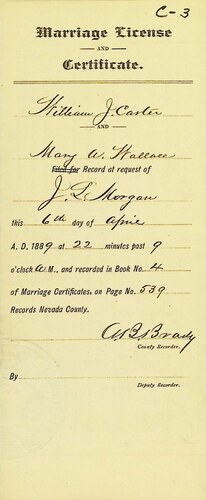 C-3
Marriage License
AND
Certificate.
William J. Carter
AND
Mary A. Wallace
Filed for Record at request of
J. L. Morgan
this 6th day of April
A. D. 1889 at 22 minutes past 9
o'clock A.M., and recorded in Book No. 4
of Marriage Certificates, on Page No. 539
Records Nevada County.
A.B. Brady
County Recorder.
By
Deputy Recorder.